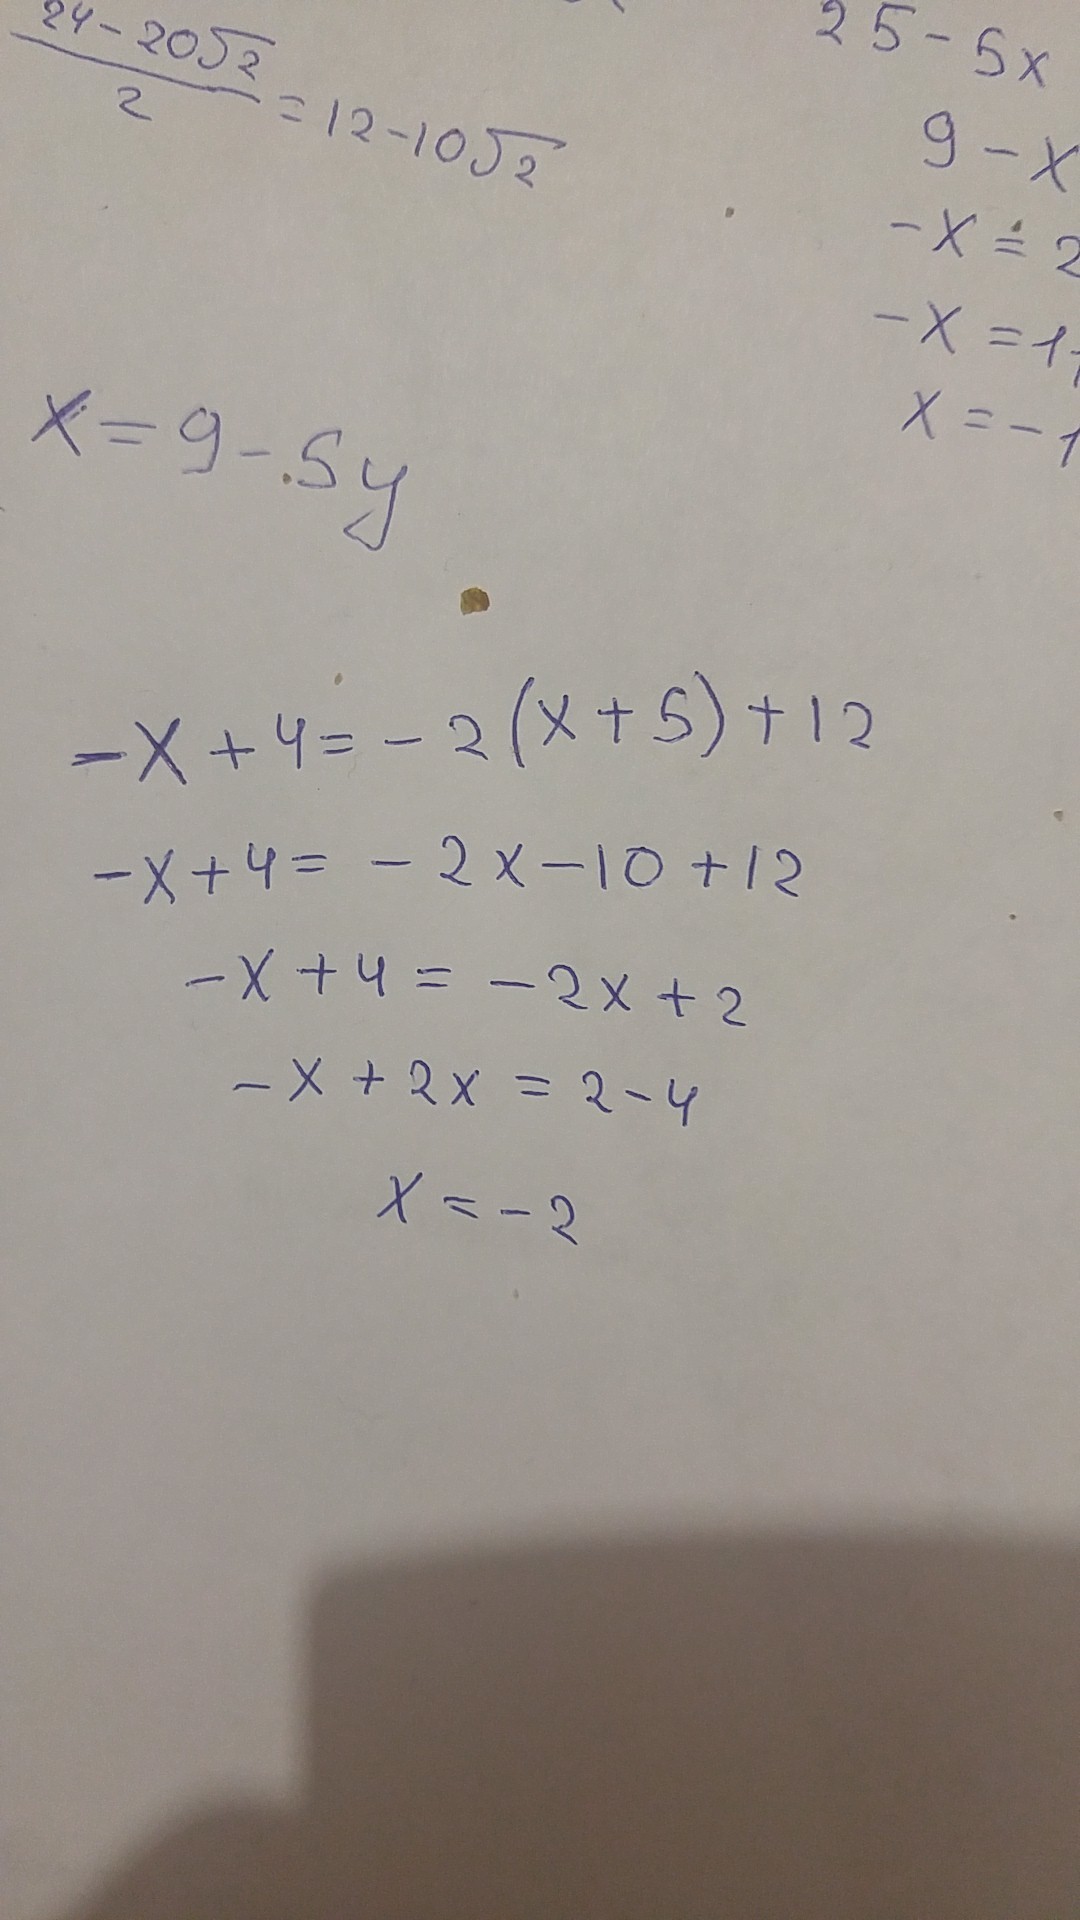 24-20√2
2
= 12-10√2
25-5x
9-x
-x = 2
-x = 1
x = -1
x = 9-5y
-x+4=-2(x+5)+12
-x+4= -2x-10+12
-x+4 = -2x+2
-x+2x = 2-4
x = -2